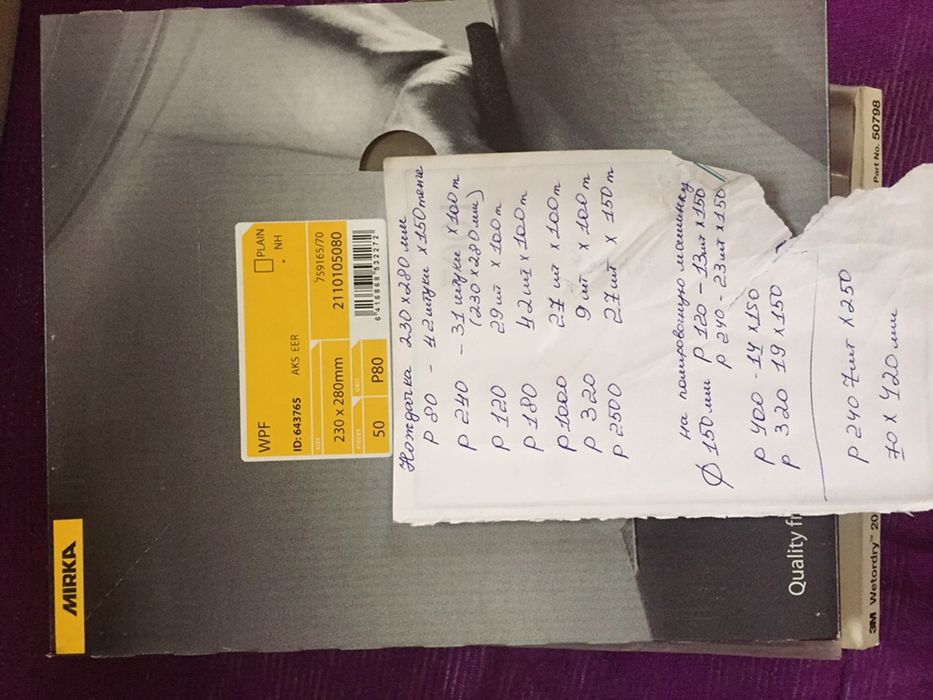 MIRKA
WPF
PLAIN
NH
ID: 643765 AKS EER
SIZE
230 x 280mm
759165/70
2110105080
PIECES
50
GRIT
P80
6 416868 632272
Quality
3M Wetordry™
Part No. 50798
Нождачка 230 х 280 мм
Р 80 - 42 штуки х 150 тенге
Р 240 - 31 штуки х 100 т
(230 х 280 мм)
Р 120 29 шт х 100 т
Р 180 42 шт х 100 т
Р 1000 27 шт х 100 т
Р 320 9 шт х 100 т
Р 2500 27 шт х 150 т
на полировочную машинку
Ø 150 мм Р 120 - 13 шт х 150
Р 240 - 23 шт х 150
Р 400 - 14 х 150
Р 320 19 х 150
Р 240 7 шт х 250
70 х 420 мм